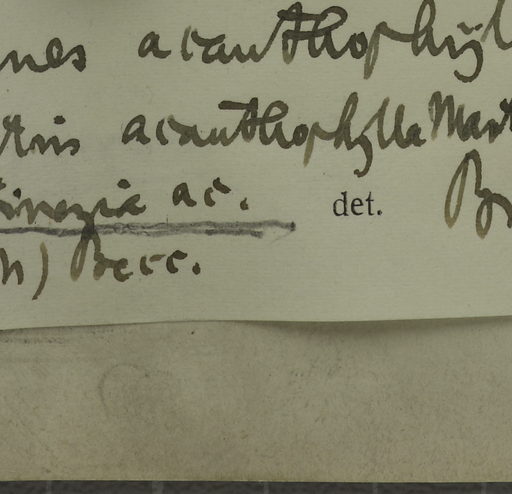 nes acanthophyl
tris acanthophylla Mart
tinezia ac. det. Br
) Becc.